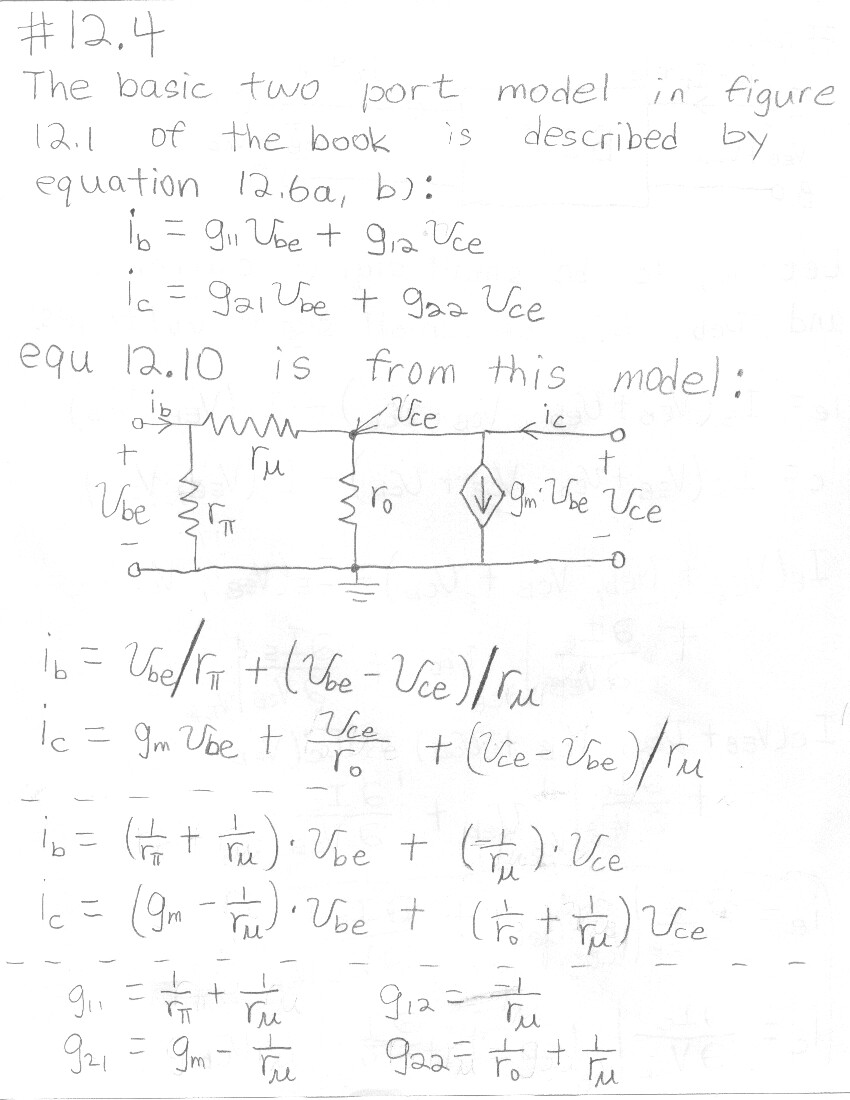 #12.4
The basic two port model in figure
12.1 of the book is described by
equation 12.6a, b):
i_b = g_11 v_be + g_12 v_ce
i_c = g_21 v_be + g_22 v_ce
equ 12.10 is from this model:
i_b v_ce i_c
r_μ
+ +
v_be r_π r_o g_m·v_be v_ce
- -
i_b = v_be/r_π + (v_be - v_ce)/r_μ
i_c = g_m v_be + v_ce/r_o + (v_ce - v_be)/r_μ
i_b = (1/r_π + 1/r_μ)·v_be + (-1/r_μ)·v_ce
i_c = (g_m - 1/r_μ)·v_be + (1/r_o + 1/r_μ) v_ce
g_11 = 1/r_π + 1/r_μ g_12 = -1/r_μ
g_21 = g_m - 1/r_μ g_22 = 1/r_o + 1/r_μ